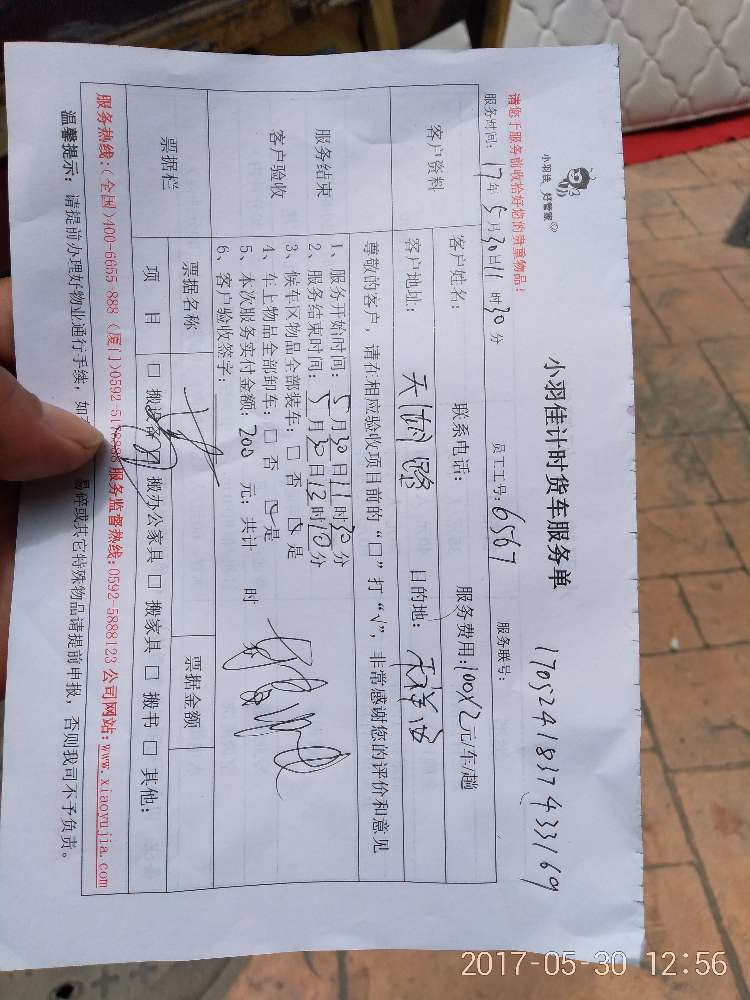 小羽佳 好管家
小羽佳计时货车服务单
1705241837433169
请您于服务前收拾好您的贵重物品!
服务时间: 17年5月30日11时30分 员工工号: 6567 服务联号:
客户资料
客户姓名: 联系电话: 服务费用:100×2元/车/趟
客户地址: 天湖路 目的地:
服务结束
客户验收
尊敬的客户,请在相应验收项目前的“□”打“√”,非常感谢您的评价和意见
1、服务开始时间: 5月30日11时30分
2、服务结束时间: 5月30日12时10分
3、候车区物品全部装车: □ 否 □ 是
4、车上物品全部卸车: □ 否 □ 是
5、本次服务实付金额: 200 元; 共计 时
6、客户验收签字:
票据栏
票据名称 票据金额
项 目 □ 搬设备 □ 搬办公家具 □ 搬家具 □ 搬书 □ 其他:
服务热线:(全国)400-6655-888 (厦门)0592-5178888 服务监督热线:0592-5888123 公司网站:www.xiaoyujia.com
温馨提示: 请提前办理好物业通行手续, 如 易碎或其它特殊物品请提前申报, 否则我司不予负责。
2017-05-30 12:56